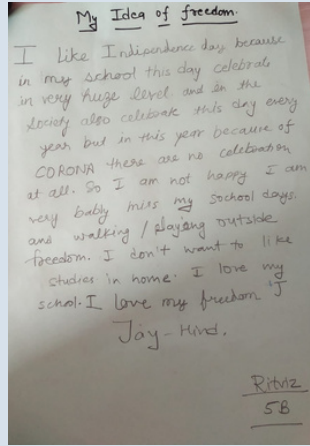 My Idea of freedom.
I like Indipendence day because
in my school this day celebrat
in very huge level and in the
society also celebrate this day every
year but in this year because of
CORONA there are no celebration
at all. So I am not happy I am
very bably miss my sochool days.
and walking / playing outside
freedom. I don't want to like
studies in home. I love my
school. I love my freedom
Jay - Hind.
Ritviz
5B